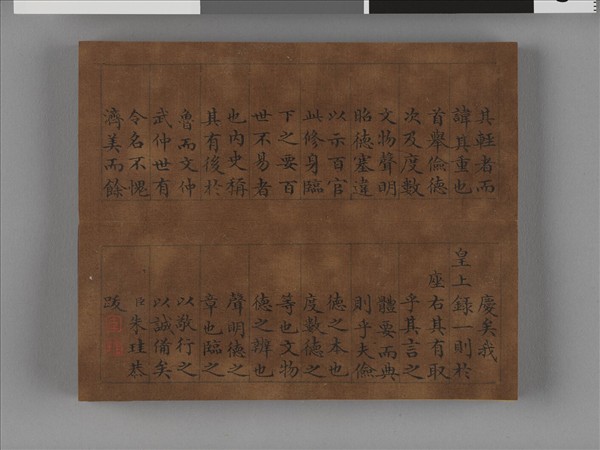 其輕者而
諱其重也
首舉儉德
次及度數
文物聲明
昭德塞違
以示百官
此修身臨
下之要百
世不易者
也內史稱
其有後於
魯而文仲
武仲世有
令名不愧
濟美而餘
慶矣我
皇上錄一則於
座右其有取
乎其言之
體要而典
則乎夫儉
德之本也
度數德之
等也文物
德之辨也
聲明德之
章也臨之
以敬行之
以誠備矣
臣朱珪恭
跋